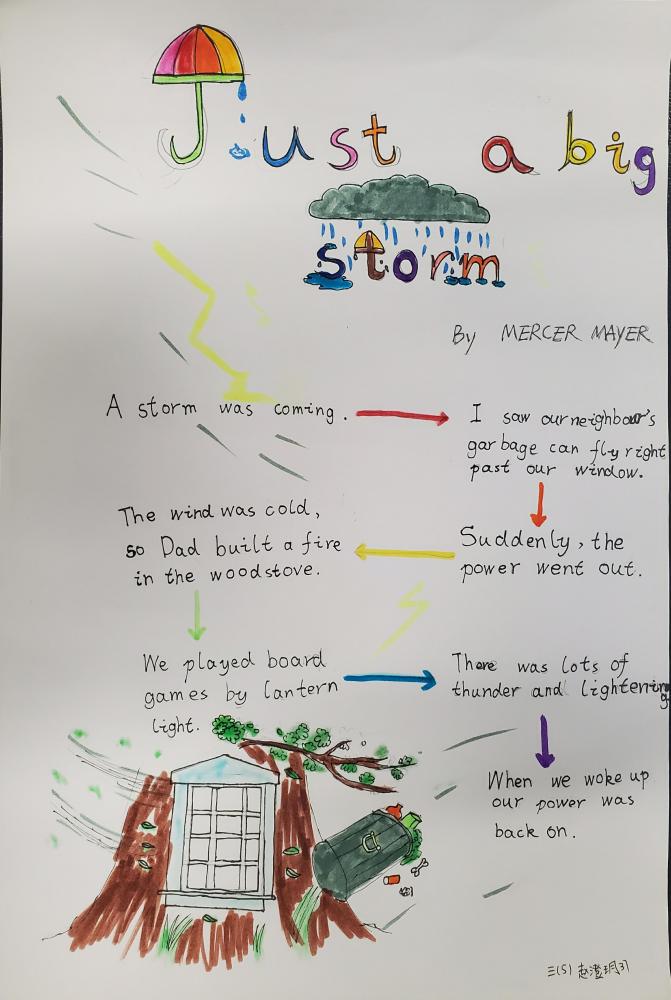 Just a big
storm
By MERCER MAYER
A storm was coming.
I saw our neighbour's
garbage can fly right
past our window.
Suddenly, the
power went out.
The wind was cold,
so Dad built a fire
in the woodstove.
We played board
games by lantern
light.
There was lots of
thunder and lightenning
When we woke up
our power was
back on.
三(5) 赵澄玥